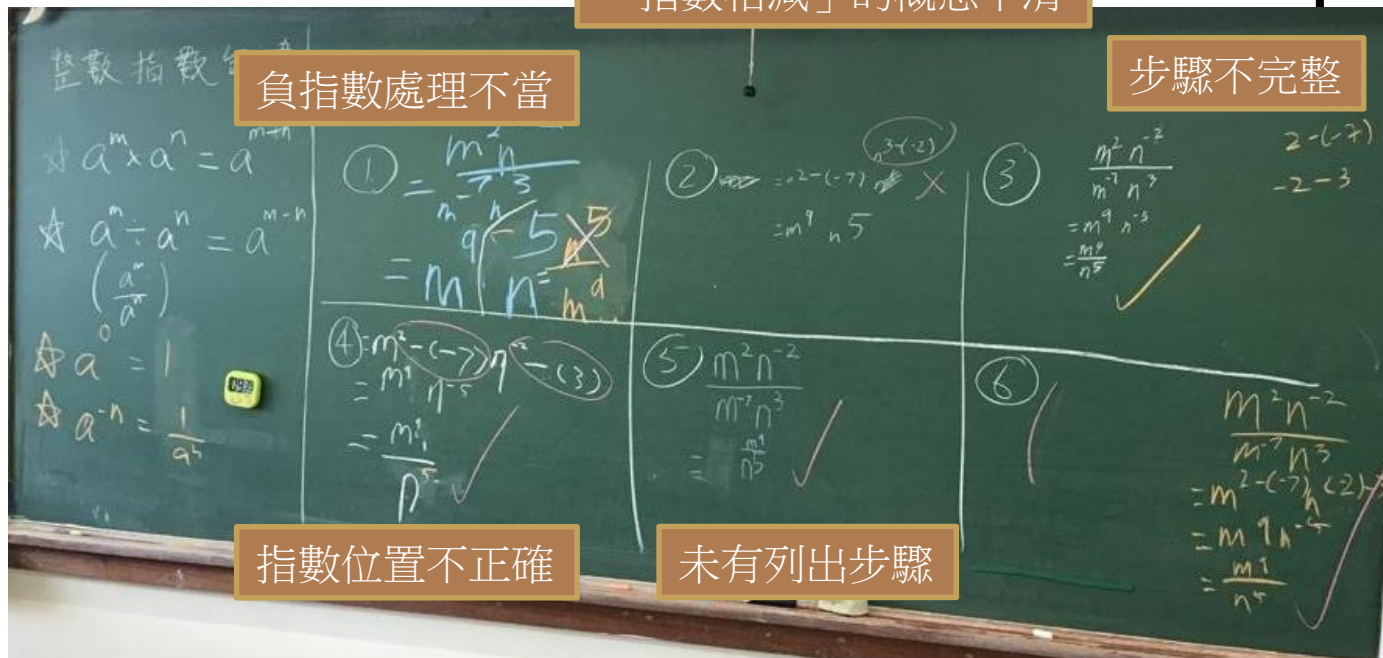 指數相減」的概念不清
步驟不完整
負指數處理不當
整數指數
☆ a^m × a^n = a^{m+n}
☆ a^m ÷ a^n = a^{m-n}
(a^m/a^n)
☆ a^0 = 1
☆ a^{-n} = 1/a^n
①
= m^2 n^{-2} / m^{-7} n^3
= m^9 n^{-5} = n^5/m^9
②
= 2-(-7) n^{3-(-2)} ×
= m^9 n5
③
m^2 n^{-2} / m^{-7} n^3
= m^9 n^{-5}
= m^9/n^5
✓
2-(-7)
-2-3
④ = m^{2-(-7)} n^{-2-(3)}
= m^9 n^{-5}
= m^9/n^5
✓
⑤ m^2 n^{-2} / m^{-7} n^3
= m^9/n^5
✓
⑥
m^2 n^{-2} / m^{-7} n^3
= m^{2-(-7)} n^{(-2)-3}
= m^9 n^{-5}
= m^9/n^5
✓
指數位置不正確
未有列出步驟